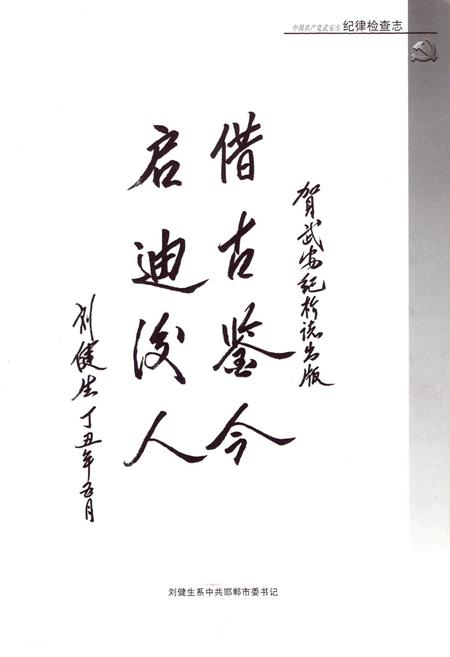 中国共产党武安市 纪律检查志
贺武安纪检志出版
借古鉴今
启迪后人
刘健生丁丑年五月
刘健生系中共邯郸市委书记